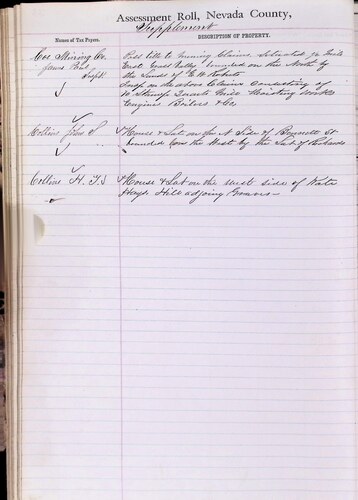 Assessment Roll, Nevada County,
Supplement
Names of Tax Payers.
DESCRIPTION OF PROPERTY.
Coe Mining Co. Poss title to Mining Claim Situated ¾ mile
James Supt. East Grass Valley bounded on the North by
the Lands of E W Roberts
Imp on the above Claim Consisting of
10 Stamp Quartz Mill Hoisting Works
Engines Boilers &c
Collins John S House & Lot on the N Side of Bennett St
bounded on the West by the Lot of Richards
Collins H. T. House & Lot on the west side of Kate
Hays Hill adjoing